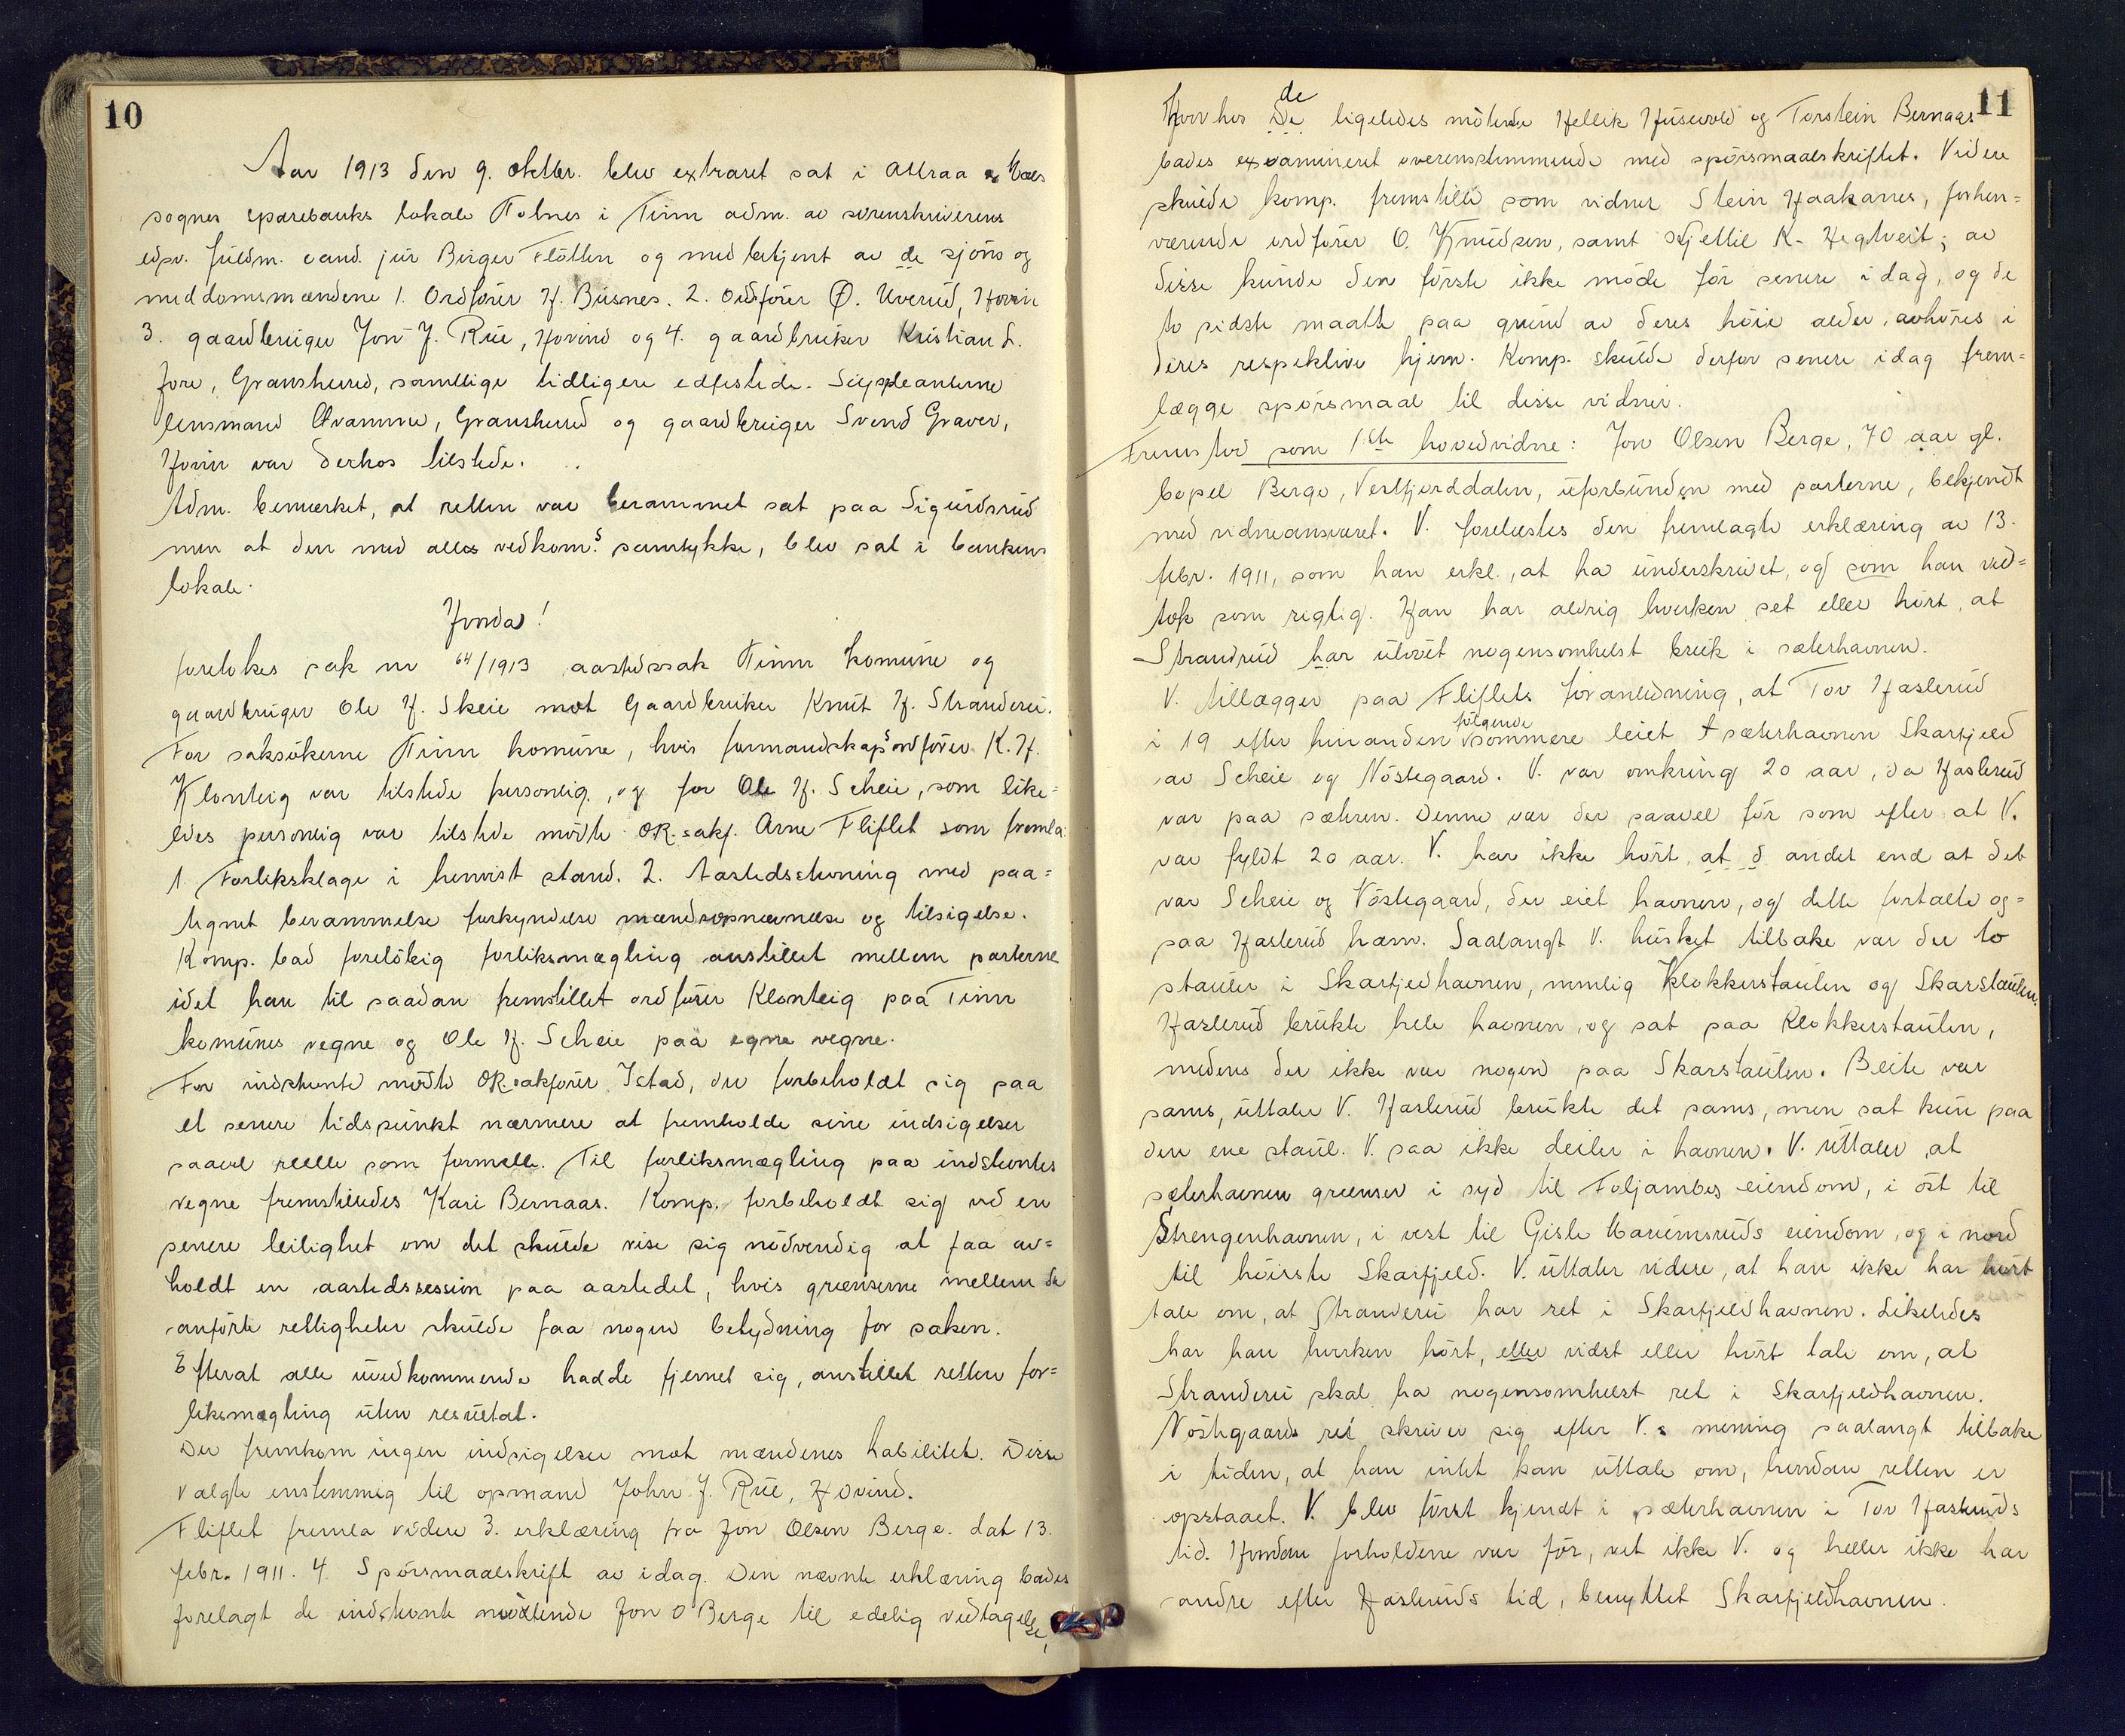 10
Aar 1913 den 9. oktbr. blev extraret sat i Attraa & Mæls
sognes sparebanks lokale Tolnes i Tinn adm. av sorenskriverens
edsv. fuldm. cand. jur Birger Flötten og med betjent av de sjöns og
meddomsmændene 1. Ordförer H. Busnes. 2. ordförer Ø. Uverud, Hovin
3. gaardbruger Jon J. Rue, Hovind og 4. gaardbruker Kristian L.
fore, Gransherred, samtlige tidligere edfestede. Suppleanterne
lensmand Kvamme, Gransherred og gaardbruger Svend Graver,
Hovin var derhos tilstede.
Adm. bemerket, at retten var berammet sat paa Sigurdsrud
men at den med alles vedkom.s samtykke, blev sat i bankens
lokale.
Hvorda!
foretokes sak nr 64/1913 aastedssak Tinn komune og
gaardbruger Ole H. Skeie mot Gaardbruker Knut H. Stranderui.
For saksökerne Tinn komune, hvis formandskapsordförer K. H.
Klonteig var tilstede personlig, og for Ole H. Scheie, som like=
ledes personlig var tilstede mödte OR.sakf. Arne Fliflet som fremla:
1. Forliksklage i henvist stand. 2. Aastedsstevning med paa=
tegnet berammelse forkyndelse mændsopnævnelse og tilsigelse.
Komp. bad foreløbig forliksmægling anstillet mellem parterne
idet han til saadan fremstillet ordförer Klonteig paa Tinn
komunes vegne og Ole H. Scheie paa egne vegne.
For indstevnte mödte OR.sakförer Istad, der forbeholdt sig paa
et senere tidspunkt nærmere at fremholde sine indsigelser
saavel reelle som formelle. Til forliksmægling paa indstevntes
vegne fremstilledes Kari Bernaas. Komp. forbeholdt sig ved en
senere leilighet om det skulde vise sig nödvendig at faa av=
holdt en aastedssession paa aastedet, hvis grænserne mellem de
anförte retligheter skulde faa nogen betydning for saken.
Efterat alle uvedkommende hadde fjernet sig, anstillet retten for=
liksmægling uten resultat.
Der fremkom ingen indsigelser mot mændenes habilitet. Disse
valgte enstemmig til opmand John J. Rue, Hovind.
Fliflet fremla videre 3. erklæring fra Jon Olsen Berge. dat 13.
febr. 1911. 4. Spörsmaalskrift av idag. Den nævnte erklæring bades
forelagt de indstevnte mödende Jon O Berge til edelig vedtagelse,
11
Hvorhos De de ligeledes mötende Hellik Husevold og Torstein Bernaas
bades examineret overenstemmende med spörsmaalskriftet. Videre
skulde komp. fremstille som vidner Stein Haakanes, forhen=
værende ordförer O. Knudsen, samt Kjettil K. Hegtveit; av
disse kunde den förste ikke möde för senere idag, og de
to sidste maatte paa grund av deres höie alder, avhöres i
deres respektive hjem. Komp. skulde derfor senere idag frem=
lægge spörsmaal til disse vidner.
Fremstod som 1ste hovedvidne: Jon Olsen Berge, 70 aar gl.
bopel Berge, Vestfjorddalen, uforbunden med parterne, bekjendt
med vidneansvaret. V. forelæstes den fremlagte erklæring av 13.
febr. 1911, som han erkl., at ha underskrivet, og som han ved=
tok som rigtig. Han har aldrig hverken set eller hört, at
Strandrud har utövet nogensomhelst bruk i sæterhavnen.
V. tillægger paa Fliflets foranledning, at Tov Haslerud
i 19 efter hinanden følgende sommere leiet sæterhavnen Skarfjeld
av Scheie og Nöstegaard. V. var omkring 20 aar, da Haslerud
var paa sæteren. Denne var der saavel för som efter at V.
var fyldt 20 aar. V. har ikke hört at d andet end at det
var Scheie og Nöstegaard, der eiet havnen, og dette fortalte og=
saa Haslerud ham. Saalangt V. husket tilbake var der to
stauler i Skarfjeldhavnen, nemlig Klokkerstaulen og Skarstaulen.
Haslerud brukte hele havnen, og sat paa Klokkerstaulen,
medens der ikke var nogen paa Skarstaulen. Beite var
sams, uttaler V. Haslerud brukte det sams, men sat kun paa
den ene staul. V. saa ikke deiler i havnen. V. uttaler at
sæterhavnen grenser i syd til Foljambes eiendom, i öst til
Strengenhavnen, i vest til Gisle Mariemsruds eiendom, og i nord
til höieste Skarfjeld. V. uttaler videre, at han ikke har hört
tale om, at Stranderui har ret i Skarfjeldhavnen. Likeledes
har han hverken hört, eller vidst eller hört tale om, at
Stranderui skal ha nogensomhelst ret i Skarfjeldhavnen.
Nöstegaards ret skriver sig efter V.s mening saalangt tilbake
i tiden, at han intet kan uttale om, hvordan retten er
opstaaet. V. blev först kjendt i sæterhavnen i Tov Hasleruds
tid. Hvordan forholdene var för, vet ikke V. og heller ikke har
andre efter Hasleruds tid, benyttet Skarfjeldhavnen.